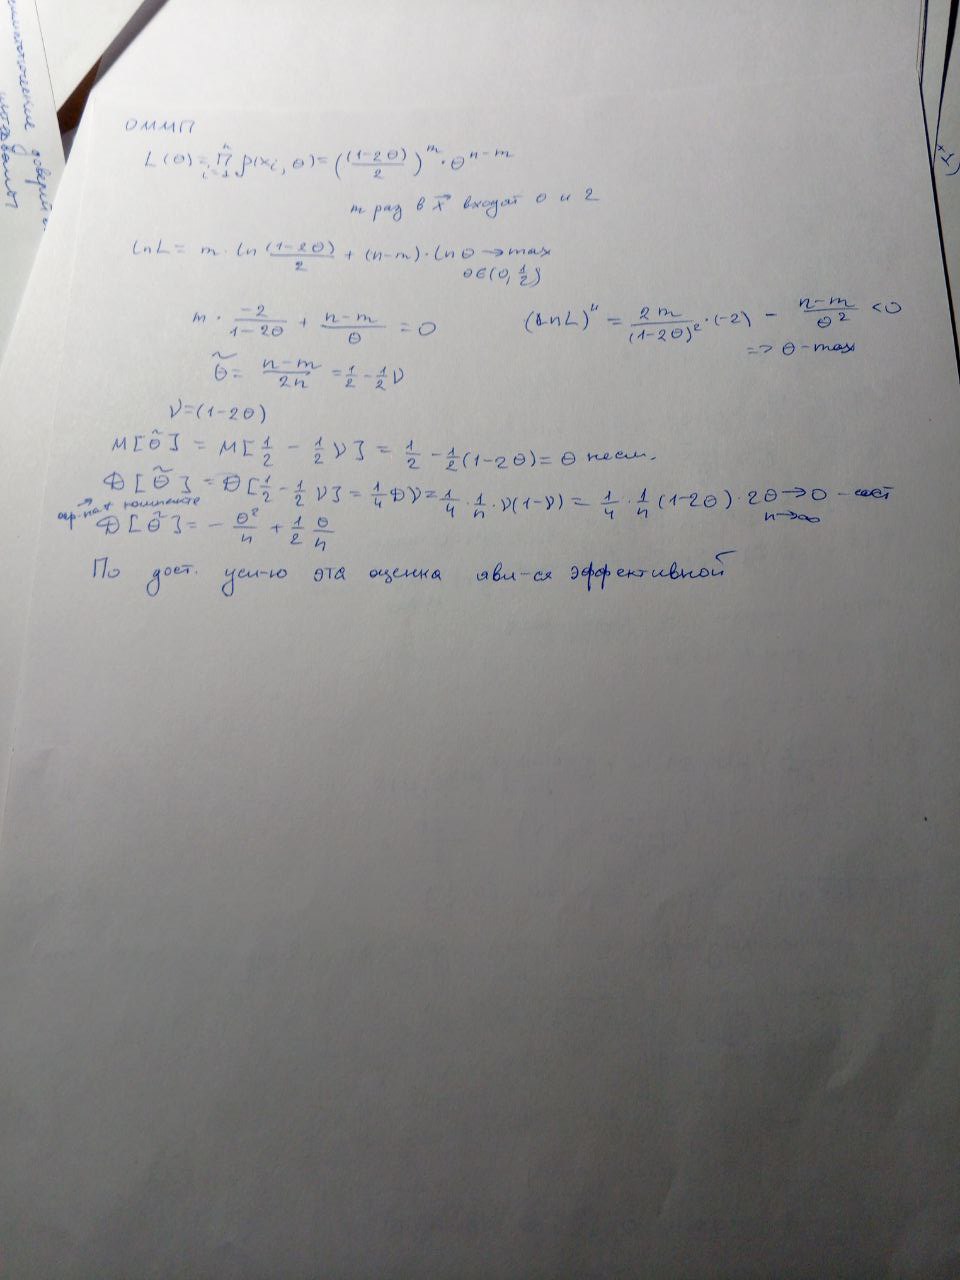 ОММП
L(θ) = ∏_{i=1}^{n} p(x_i, θ) = ((1-2θ)/2)^m · θ^{n-m}
m раз в x⃗ входят 0 и 2
ln L = m · ln (1-2θ)/2 + (n-m) · ln θ → max
θ∈(0, 1/2)
m · -2/(1-2θ) + (n-m)/θ = 0
(ln L)'' = 2m/(1-2θ)² · (-2) - (n-m)/θ² < 0
=> θ - max
θ̃ = (n-m)/2n = 1/2 - 1/2 ν
ν = (1-2θ)
M[θ̃] = M[1/2 - 1/2 ν] = 1/2 - 1/2 (1-2θ) = θ несм.
D[θ̃] = D[1/2 - 1/2 ν] = 1/4 Dν = 1/4 · 1/n · ν(1-ν) = 1/4 · 1/n (1-2θ) · 2θ → 0 - сост
n→∞
D[θ̃] = - θ²/n + 1/2 θ/n
По дост. усл-ю эта оценка явл-ся эффективной